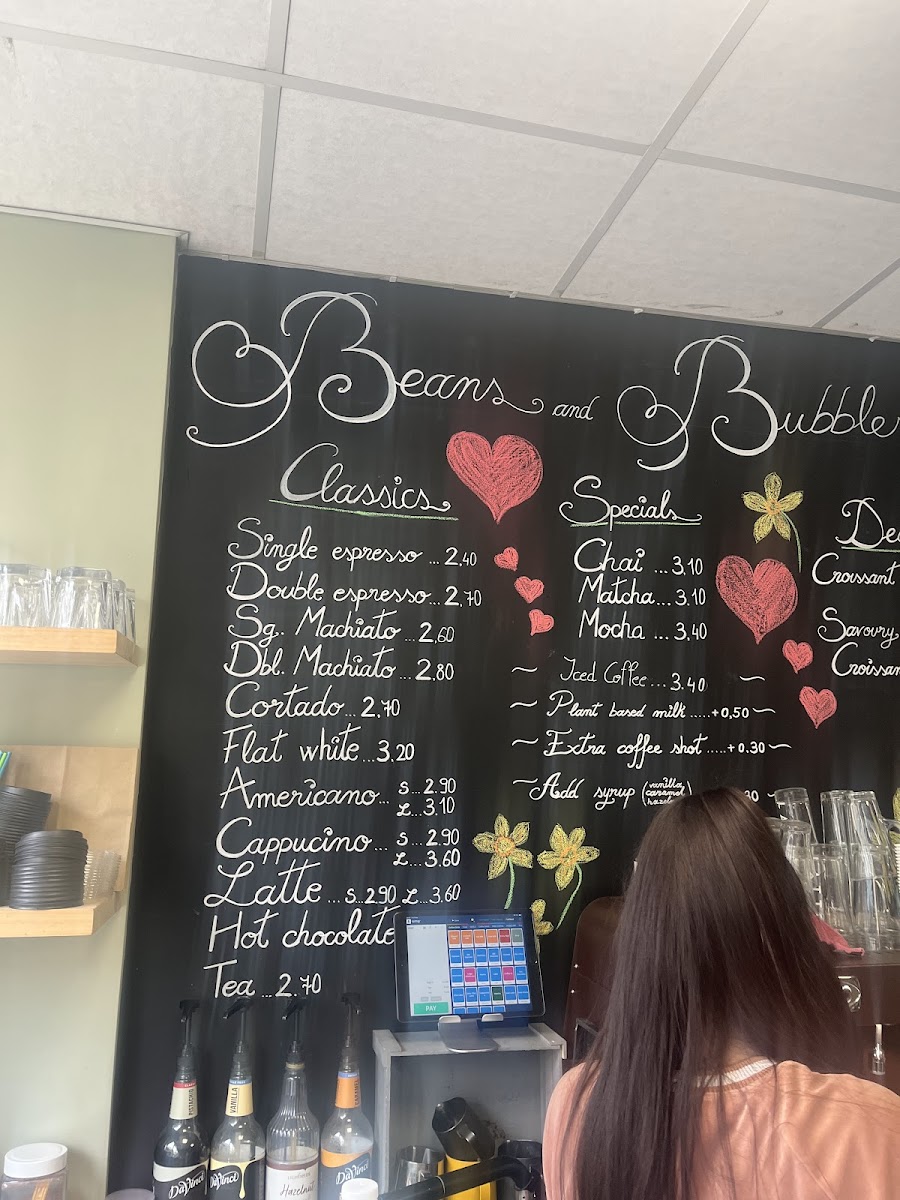 Beans and Bubble
Classics
Single espresso ... 2.40
Double espresso ... 2.70
Sg. Machiato ... 2.60
Dbl. Machiato ... 2.80
Cortado ... 2.70
Flat white ... 3.20
Americano ... S ... 2.90
L ... 3.10
Cappucino ... S ... 2.90
L ... 3.60
Latte ... S ... 2.90 L ... 3.60
Hot chocolate
Tea ... 2.70
Specials
Chai ... 3.10
Matcha ... 3.10
Mocha ... 3.40
~ Iced Coffee ... 3.40 ~
~ Plant based milk ..... +0.50 ~
~ Extra coffee shot ..... +0.30 ~
~ Add syrup (vanilla
caramel
Croissant
Savoury
PAY
PISTACHIO
VANILLA
CARAMEL
DaVinci
DaVinci
Hazelnut
DaVinci